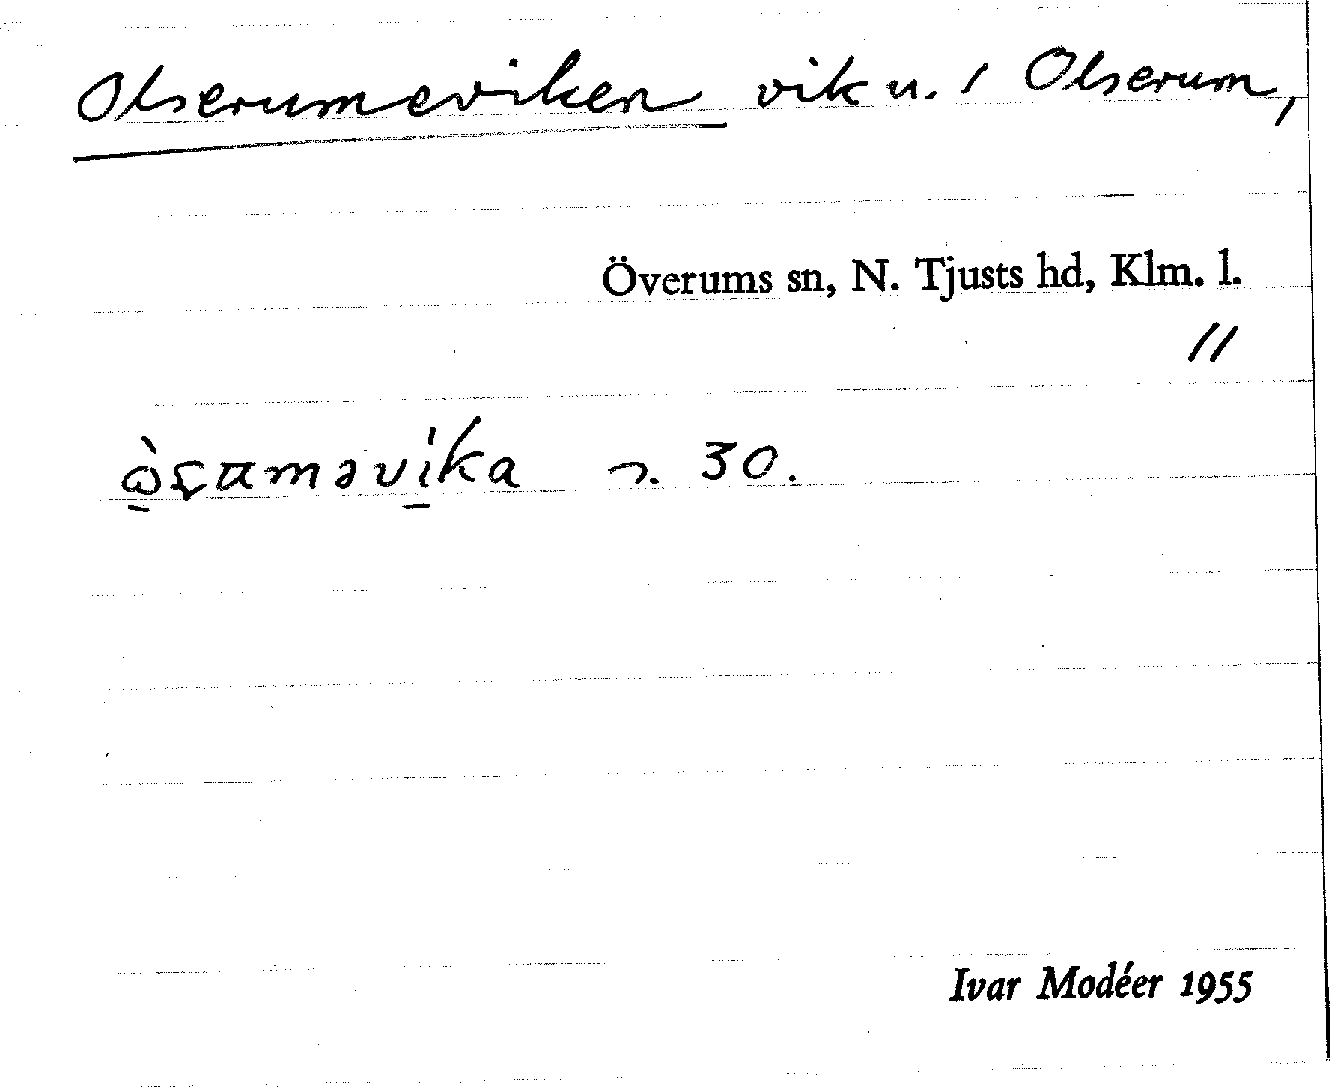 Olserumeviken vik u. / Olserum,
Överums sn, N. Tjusts hd, Klm. l.
//
30.
Ivar Modéer 1955